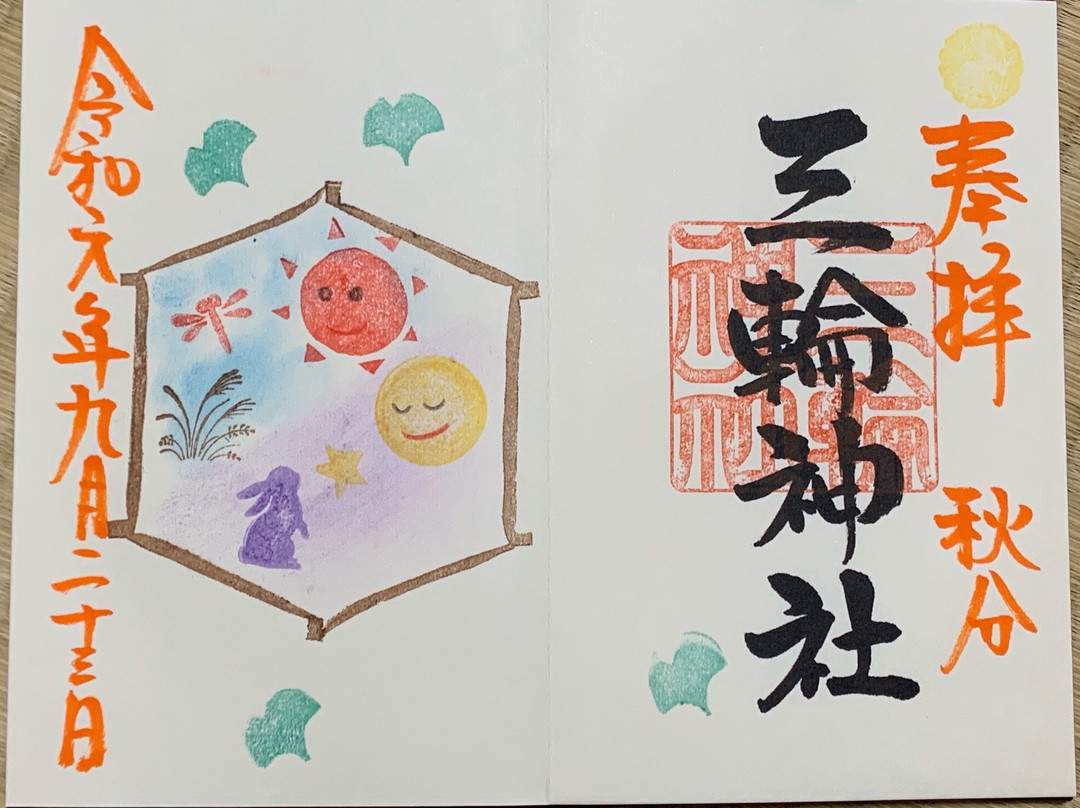 奉拝 秋分
三輪神社
三輪神社
令和元年九月二十三日